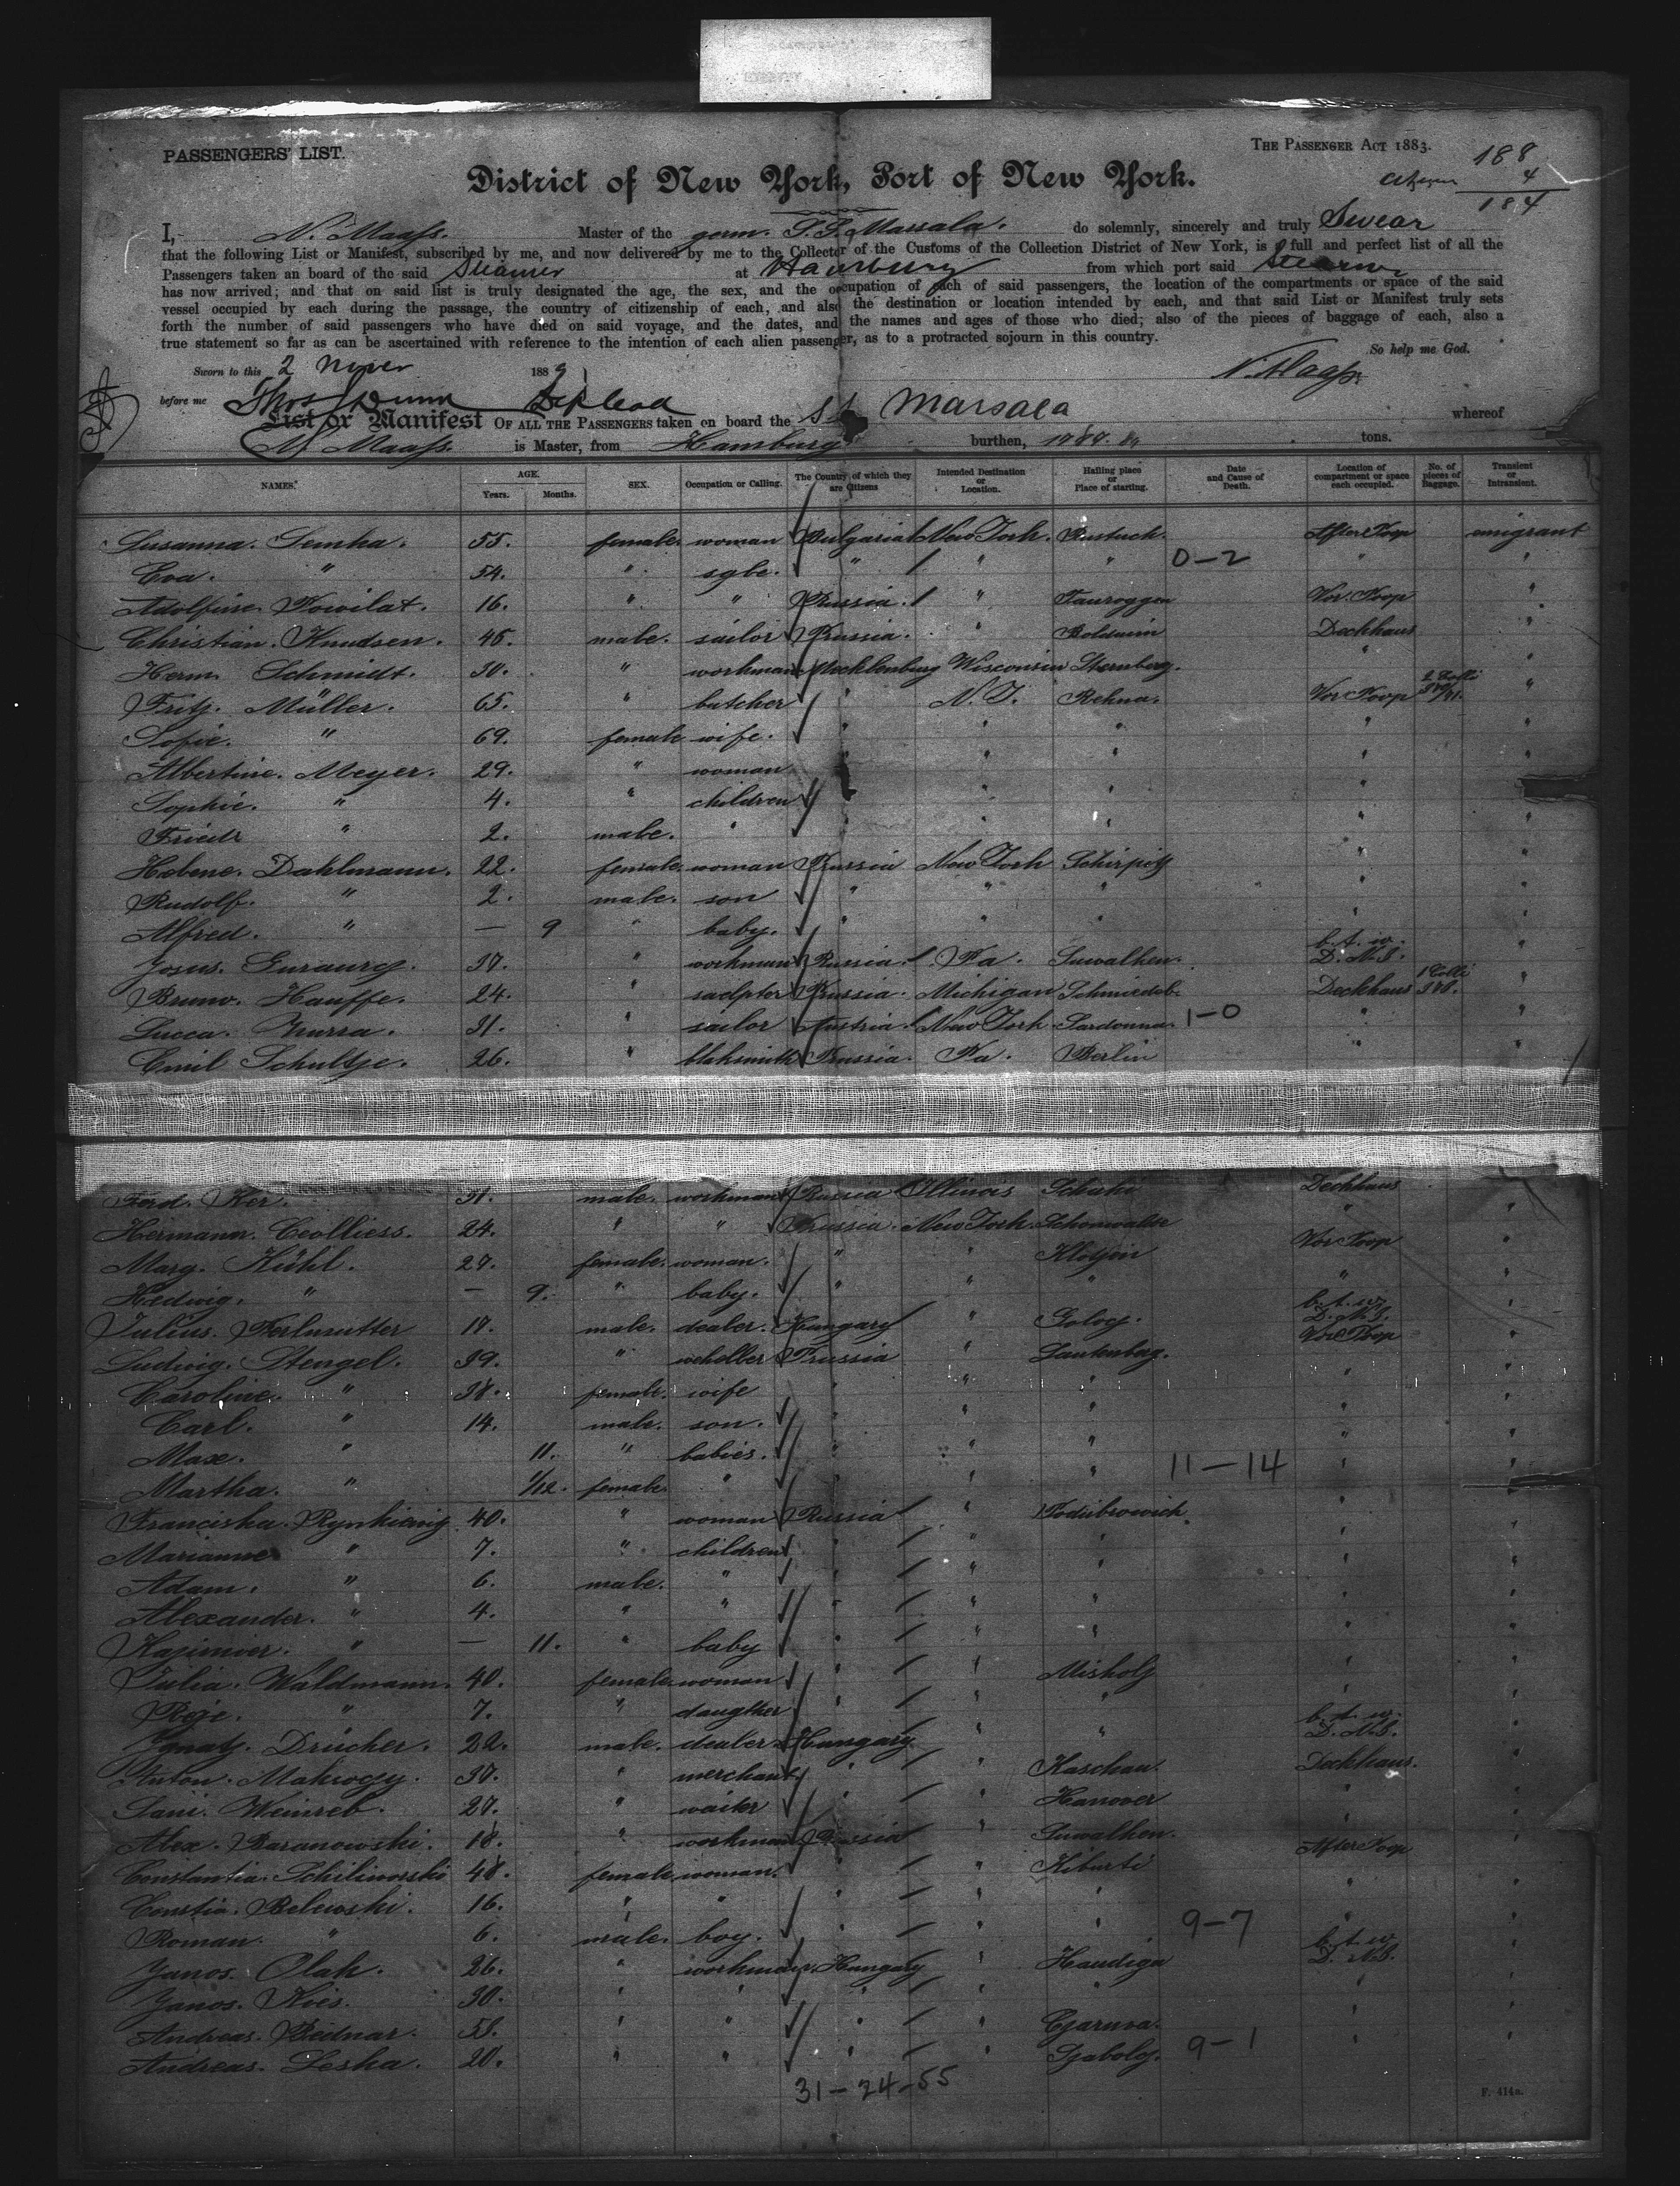 PASSENGERS' LIST.
THE PASSENGER ACT 1883.
188
4
184
District of New York, Port of New York.
I, N. Maass. Master of the germ. S.S. Marsala. do solemnly, sincerely and truly Swear
that the following List or Manifest, subscribed by me, and now delivered by me to the Collector of the Customs of the Collection District of New York, is a full and perfect list of all the
Passengers taken an board of the said Steamer at Hamburg from which port said Steamer
has now arrived; and that on said list is truly designated the age, the sex, and the occupation of each of said passengers, the location of the compartments or space of the said
vessel occupied by each during the passage, the country of citizenship of each, and also the destination or location intended by each, and that said List or Manifest truly sets
forth the number of said passengers who have died on said voyage, and the dates, and the names and ages of those who died; also of the pieces of baggage of each, also a
true statement so far as can be ascertained with reference to the intention of each alien passenger, as to a protracted sojourn in this country.
So help me God.
Sworn to this 2 Nover 1889
N. Maass.
before me Thos Dunn
List or Manifest OF ALL THE PASSENGERS taken on board the SS Marsala whereof
N. Maass. is Master, from Hamburg burthen, tons.
NAMES. AGE. Years. Months. SEX. Occupation or Calling. The Country of which they are Citizens Intended Destination or Location. Hailing place or Place of starting. Date and Cause of Death. Location of compartment or space each occupied. No. of pieces of Baggage. Transient or Intransient.
Susanna. Semka. 55. female. woman Bulgaria New York. Rustuck. After Poop emigrant
Eva. " 54. " sgle. " " " 0-2 " "
Adolfine. Powilat. 16. " " Russia. " Tauroggen Vor. Poop "
Christian. Knudsen. 45. male. sailor Prussia. " Deckhaus "
Herm. Schmidt. 30. " workman Mecklenburg Wisconsin Sternberg. " "
Fritz. Müller. 65. " butcher " N.Y. Rehna. Vor Poop 2 Colli "
Sofie. " 69. female wife. " " " " "
Albertine. Meyer. 29. " woman " " " "
Sophie. " 4. " children " " " "
Friedr " 2. male. " " " " "
Helene. Dahlmann. 22. female. woman Prussia New York Schirpitz " "
Rudolf. " 2. male. son " " " " "
Alfred. " — 9 " baby. " " " " "
Josus. 37. " workman Russia. Pa. Suwalken. b. t. w. D. N.S. "
Bruno. Hauffe. 24. " sculptor Prussia. Michigan Schmiedeb. Deckhaus 1 Colli "
Lucca. Murra. 31. " sailor Austria. New York. 1-0 " "
Emil Schultze. 26. " blaksmith Prussia. Pa. Berlin " "
Ferd. Ker. 31. male. workman Russia Illinois Schaki Deckhaus
Hermann. 24. " " Prussia. New York. Schönwalde " "
Marg. Kühl. 27. female. woman. " " Vor Poop "
Hedwig. " — 9. " baby. " " " " "
Julius. 18. male. dealer. Hungary " b. t. w. D. N.S. "
Ludwig. Stengel. 39. " Prussia " Lautenberg. Vor Poop "
Caroline. " 38. female. wife " " " " "
Carl. " 14. male. son. " " " " "
Max. " 11. " babies. " " " 11-14 " "
Martha. " 1/12. female. " " " " " "
Franciska. 40. " woman Russia " " "
Marianne " 7. " children " " " " "
Adam. " 6. male. " " " " " "
Alexander. " 4. " " " " " " "
Kasimier. " — 11. " baby " " " " "
Julia. Waldmann. 40. female. woman " " Miskolz " "
" 7. " daugther " " " "
Ignatz. Drücker. 22. male. dealer. Hungary " " b. t. w. D. N.S. "
Anton. 37. " merchant. " " Kaschau. Deckhaus. "
Sani. Weinreb. 27. " waiter " " Hanover " "
Alex. Baranowski. 18. " workman Russia " Suwalken. " "
Constantia. 48. female woman. " " Kibarti After Poop "
Constia. Belewski. 16. " " " " " " "
Roman. " 6. male. boy. " " " 9-7 " "
Janos. Olah. 26. " workman. Hungary " b. t. w. D. N.S. "
Janos. Kies. 30. " " " " " "
Andreas. Bednar. 53. " " " " " "
Andreas. Leska. 20. " " " " Szabolz. 9-1 " "
31-24-55
F. 414a.